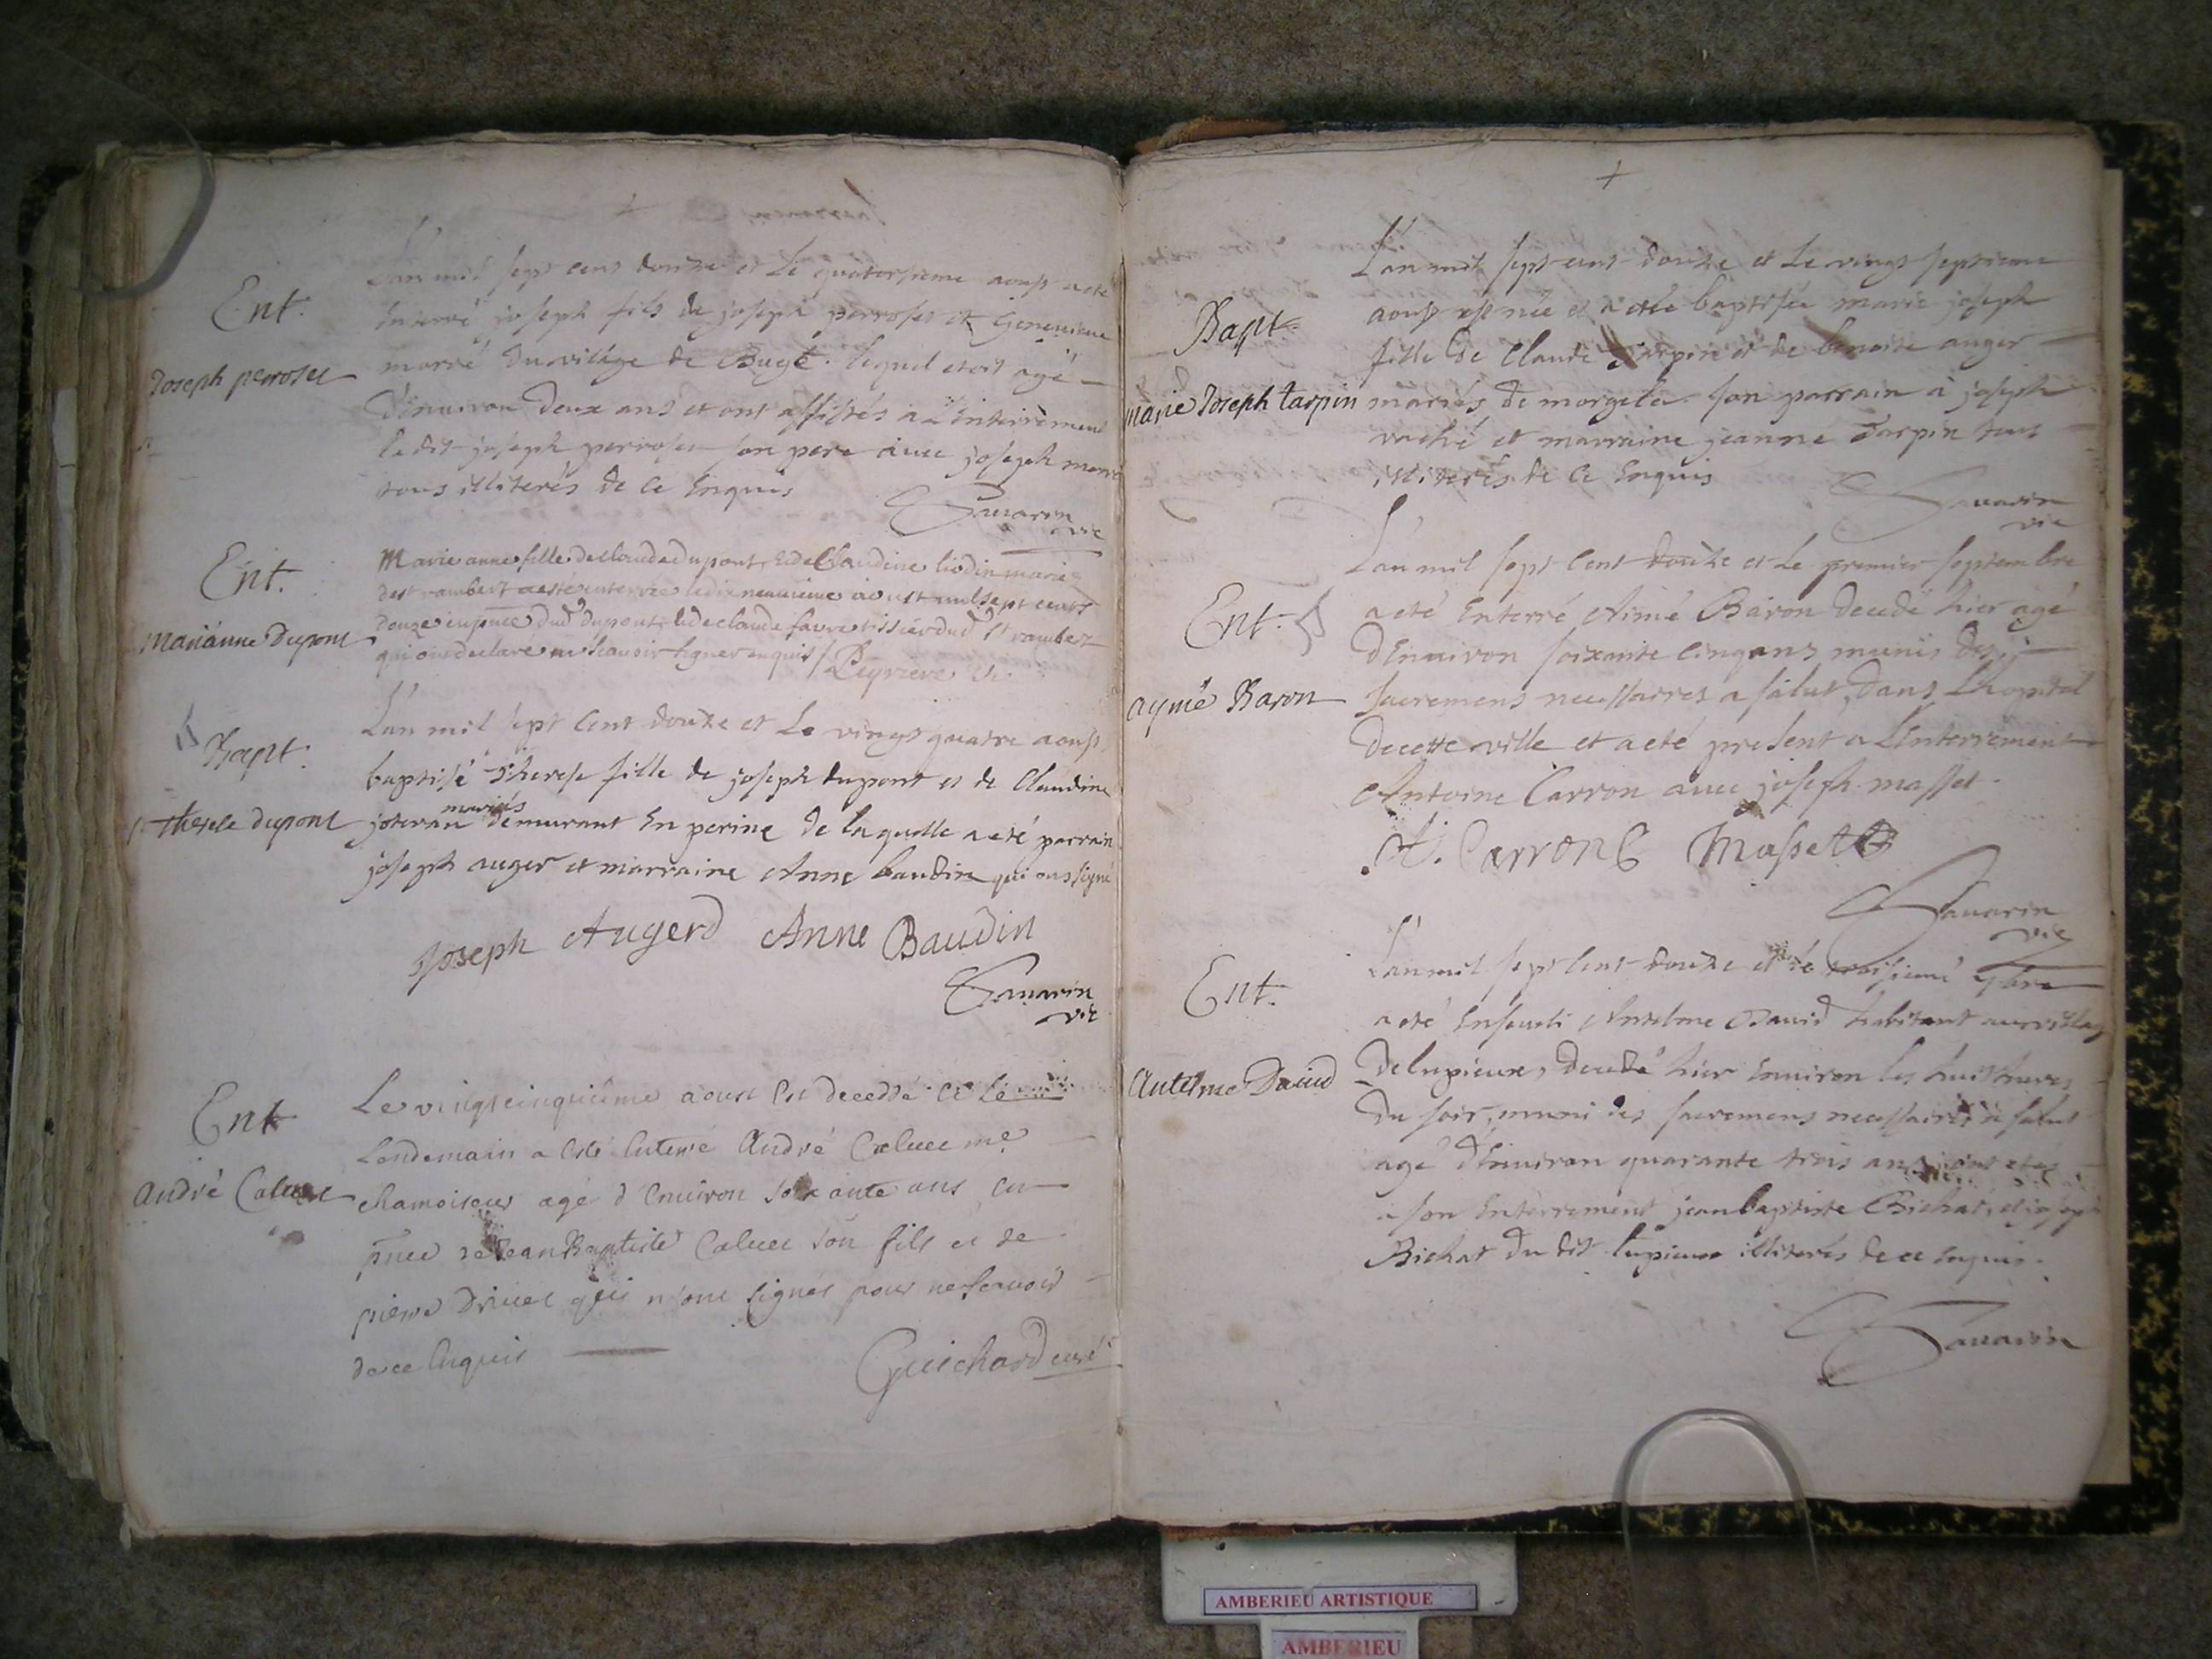 Ent.
Joseph perroset
L'an mil sept cens douze et le quatorsieme aoust a eté
enterré joseph fils de joseph perroset et Genevieve
marré du vilage de Bugé. lequel etoit agé
d'environ deux ans et ont assistés a L'enterrement
ledit joseph perroset son pere avec joseph marré
tous illiterés de ce enquis
Savarin
vic
Ent.
Marianne Dupont
Marie anne fille de claude dupont, et de Claudine liodin mariez
de st rambert a esté enterrée le dix neuvieme aoust mil sept cents
douze en pnce dud dupont, et de claude favre tissier dud st rambert
qui ont declaré ne scavoir signer enquis / vic
Bapt.
therese dupont
L'an mil sept cent douze et le vingt quatre aoust
baptisé Therese fille de joseph dupont et de Claudine
mariés
demurant en perine de laquelle a eté parrain
joseph auger et marraine Anne baudin qui ont signé
Joseph Augerd Anne Baudin
Savarin
vic
Ent
André Caluet
Le vingt cinquiéme aoust est deceddé et le
Lendemain a esté enterré André Caluet me
chamoiseur agé d'environ soixante ans en
pnce de Jean Baptiste Caluet son fils et de
pierre Drivet qui n'sont signés pour ne scavoir
de ce enquis
Guichard curé
Bapt.
Marie Joseph tarpin
L'an mil sept cens douze et le vingt septieme
aoust est née et a eté baptisée marie joseph
fille de Claude Tarpin et de benoite auger
mariés de morgela. son parrain a joseph
vaché et marraine jeanne Tarpin tous
illiterés de ce enquis
Savarin
vic
Ent.
aymé Baron
L'an mil sept cent douze et le premier septembre
a eté enterré Aimé Baron decedé hier agé
d'Environ soixante cinq ans munis des
sacremens necessaires a salut, dans L'hopital
de cette ville et a eté present a L'enterrement
Antoine Carron avec joseph masset
A. Carron Masset
Savarin
vic
Ent.
Antelme David
L'an mil sept cent douze et le troisieme 7bre
a eté enseveli Antelme David habitant au village
de lupieux, decedé hier environ les huit heures
du soir, muni des sacremens necessaires a salut
agé d'Environ quarante trois ans, ont etes
a son enterrement jean baptiste Bichat, et joseph
Bichat du dit lupieux illiterés de ce enquis.
Savarin
AMBERIEU ARTISTIQUE
AMBERIEU